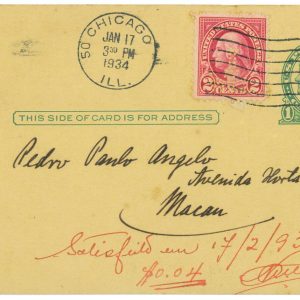 SO CHICAGO
JAN 17
3 30 PM
1934
ILL.
UNITED STATES POSTAGE
2 CENTS 2
THIS SIDE OF CARD IS FOR ADDRESS
1
Pedro Paulo Angelo
Avenida Horta
Macau
Satisfeito em 17/2/93
$0.04